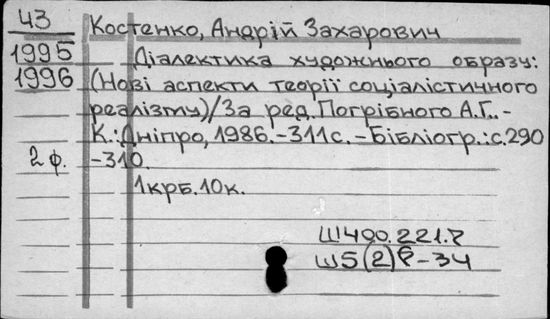 43 Костенко, Андрій Захарович
1995 Діалектика художнього образу:
1996 (Нові аспекти теорії соціалістичного
реалізму)/За ред. Погрібного А.Г..-
К.:Дніпро, 1986.-311с.-Бібліогр.:с.290
2 ф. -310.
1крб.10к.
Ш400.221.
Ш5(2) -34